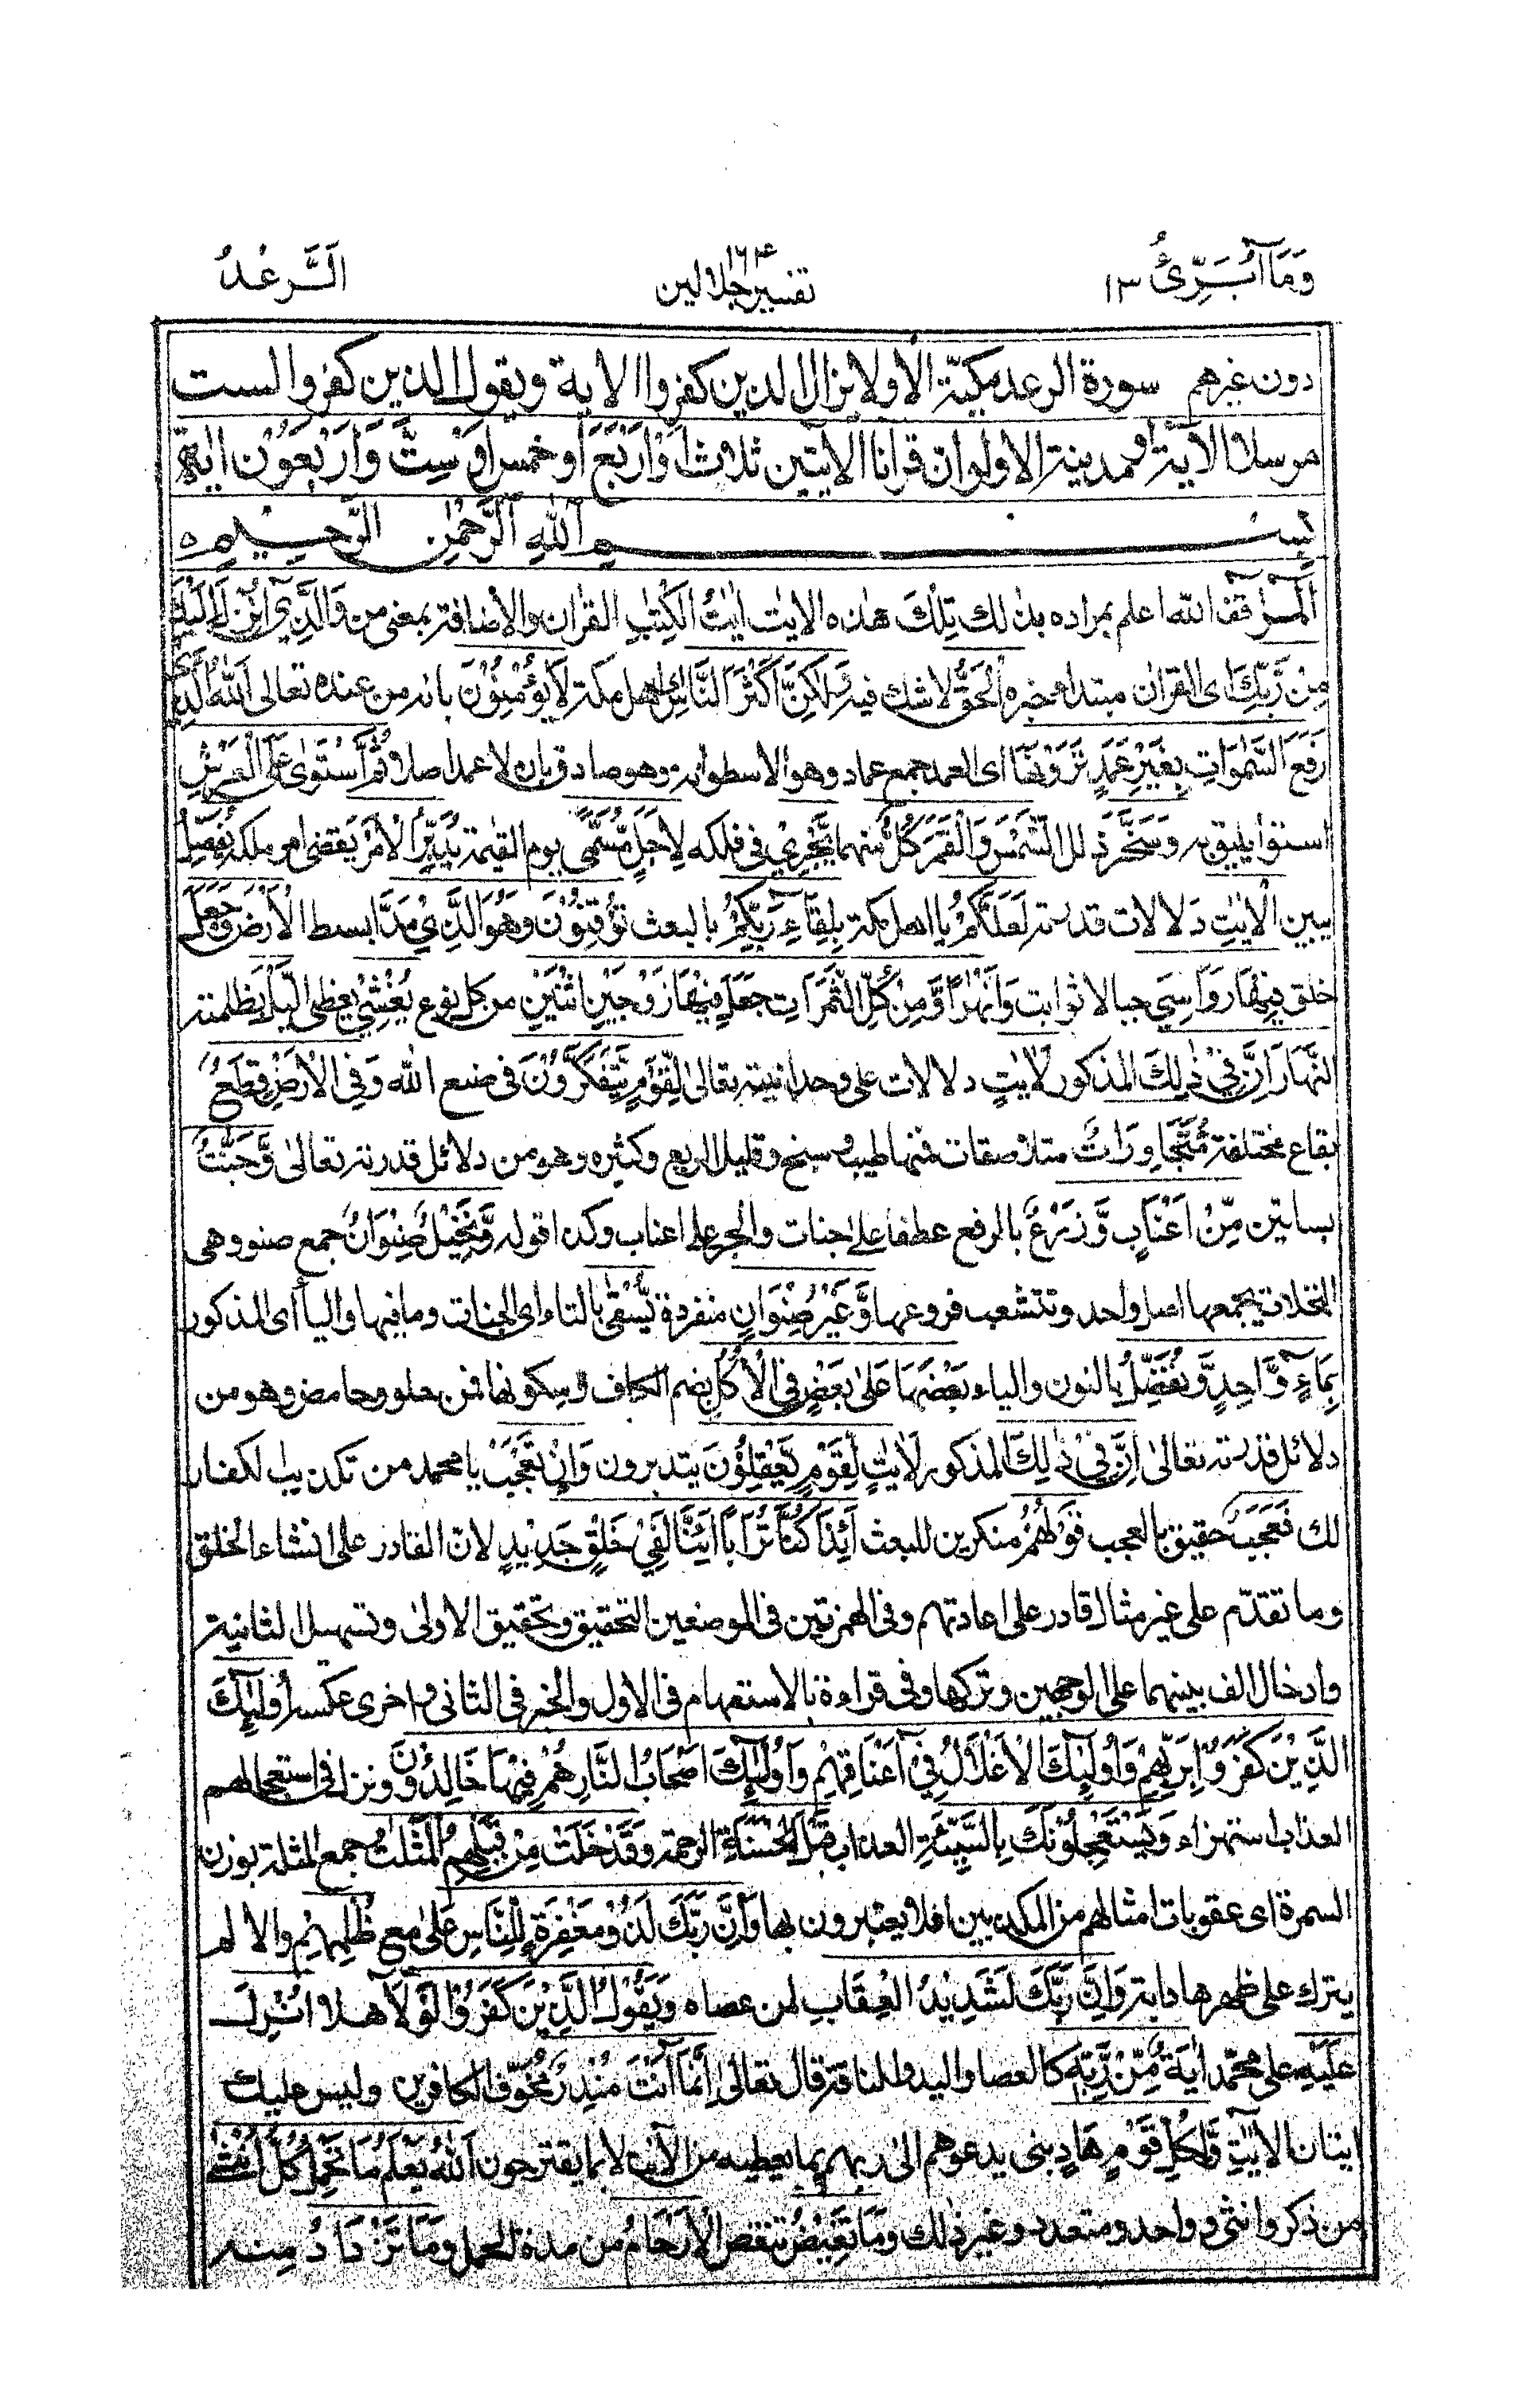 وَمَآ اُبَرِّئُ ١٣
١٦٤
تفسير جلالين
اَلرَّعْدُ
دون غيرهم سورة الرعد مكية الا ولا يزال الذين كفروا الاية ويقول الذين كفروا لست
مرسلا الآية او مدنية الا ولو ان قرانا الآيتين ثلاث اَوْ اَرْبَعَ او خمس او سِتٌّ وَّاَرْبَعُوْنَ اٰيَة
بِسْمِ اللّٰهِ الرَّحْمٰنِ الرَّحِيْمِ ٥
الٓمّٓرٰ قف الله اعلم بمراده بذلك تِلْكَ هذه الايات اٰيٰتُ الْكِتٰبِ القرٰان والاضافة بمعنى من وَالَّذِيْٓ اُنْزِلَ اِلَيْكَ
مِنْ رَّبِّكَ اى القران مبتدا وخبره الْحَقُّ لا شك فيه وَلٰكِنَّ اَكْثَرَ النَّاسِ اى اهل مكة لَا يُؤْمِنُوْنَ بانه من عنده تعالى اَللّٰهُ الَّذِيْ
رَفَعَ السَّمٰوٰتِ بِغَيْرِ عَمَدٍ تَرَوْنَهَا اى العمد جمع عماد وهو الاسطوانة وهو صادق بان لا عمد اصلا ثُمَّ اسْتَوٰى عَلَى الْعَرْشِ
استواء يليق به وَسَخَّرَ ذلل الشَّمْسَ وَالْقَمَرَ كُلٌّ منهما يَّجْرِيْ فى فلكه لِاَجَلٍ مُّسَمًّى يوم القيمة يُدَبِّرُ الْاَمْرَ يقضى امر ملكه يُفَصِّلُ
يبين الْاٰيٰتِ دلالات قدرته لَعَلَّكُمْ يا اهل مكة بِلِقَآءِ رَبِّكُمْ بالبعث تُوْقِنُوْنَ وَهُوَ الَّذِيْ مَدَّ بسط الْاَرْضَ وَجَعَلَ
خلق فِيْهَا رَوَاسِيَ جبالا ثوابت وَاَنْهٰرًا وَّمِنْ كُلِّ الثَّمَرَاتِ جَعَلَ فِيْهَا زَوْجَيْنِ اثْنَيْنِ من كل نوع يُغْشِي يغطى الَّيْلَ بظلمته
النَّهَارَ اِنَّ فِيْ ذٰلِكَ المذكور لَاٰيٰتٍ دلالات على وحدانيته تعالى لِّقَوْمٍ يَّتَفَكَّرُوْنَ فى صنع الله وَفِي الْاَرْضِ قِطَعٌ
بقاع مختلفة مُّتَجٰوِرَاتٌ متلاصقات فمنها طيب وسبخ وقليل الريع وكثيره وهو من دلائل قدرته تعالى وَّجَنّٰتٌ
بساتين مِّنْ اَعْنَابٍ وَّزَرْعٌ بالرفع عطفا على جنات والجر على اعناب وكذا قوله وَّنَخِيْلٌ صِنْوَانٌ جمع صنو وهى
النخلات يجمعها اصل واحد وتتشعب فروعها وَّغَيْرُ صِنْوَانٍ منفردة يُّسْقٰى بالتاء اى الجنات وما فيها واليا اى المذكور
بِمَآءٍ وَّاحِدٍ وَّنُفَضِّلُ بالنون والياء بَعْضَهَا عَلٰى بَعْضٍ فِي الْاُكُلِ بضم الكاف وسكونها فمن حلو وحامض وهو من
دلائل قدرته تعالى اِنَّ فِيْ ذٰلِكَ المذكور لَاٰيٰتٍ لِّقَوْمٍ يَّعْقِلُوْنَ يتدبرون وَاِنْ تَعْجَبْ يا محمد من تكذيب الكفار
لك فَعَجَبٌ حقيق بالعجب قَوْلُهُمْ منكرين للبعث أَئِذَا كُنَّا تُرَابًا أَئِنَّا لَفِيْ خَلْقٍ جَدِيْدٍ لان القادر على انشاء الخلق
وما تقدّم على غير مثال قادر على اعادتهم وفى الهمزتين فى الموضعين التحقيق وتحقيق الاولى وتسهيل الثانية
وادخال الف بينهما على الوجهين وتركها وفى قراءة بالاستفهام فى الاول والخبر فى الثانى واخرى عكسه اُولٰٓئِكَ
الَّذِيْنَ كَفَرُوْا بِرَبِّهِمْ وَاُولٰٓئِكَ الْاَغْلٰلُ فِيْٓ اَعْنَاقِهِمْ وَاُولٰٓئِكَ اَصْحَابُ النَّارِ هُمْ فِيْهَا خَالِدُوْنَ ونزل فى استعجالهم
العذاب استهزاء وَيَسْتَعْجِلُوْنَكَ بِالسَّيِّئَةِ العذاب قَبْلَ الْحَسَنَةِ الرحمة وَقَدْ خَلَتْ مِنْ قَبْلِهِمُ الْمَثُلٰتُ جمع المثلة بوزن
السمرة اى عقوبات امثالهم من المكذبين افلا يعتبرون بها وَاِنَّ رَبَّكَ لَذُوْ مَغْفِرَةٍ لِّلنَّاسِ عَلٰى مع ظُلْمِهِمْ والا لم
يترك على ظهرها دابة وَاِنَّ رَبَّكَ لَشَدِيْدُ الْعِقَابِ لمن عصاه وَيَقُوْلُ الَّذِيْنَ كَفَرُوْا لَوْلَآ هلا اُنْزِلَ
عَلَيْهِ على محمّد اٰيَةٌ مِّنْ رَّبِّهٖ كالعصا واليد والناقة قال تعالى اِنَّمَآ اَنْتَ مُنْذِرٌ مُخَوّف الكافرين وليس عليك
اتيان الاٰيٰتِ وَّلِكُلِّ قَوْمٍ هَادٍ نبى يدعوهم الى ربهم بما يعطيه من الآيت لا بما يقترحون اَللّٰهُ يَعْلَمُ مَا تَحْمِلُ كُلُّ اُنْثٰى
من ذكر وانثى وواحد ومتعدد وغير ذلك وَمَا تَغِيْضُ تنقص الْاَرْحَامُ من مدة الحمل وَمَا تَزْدَادُ منه